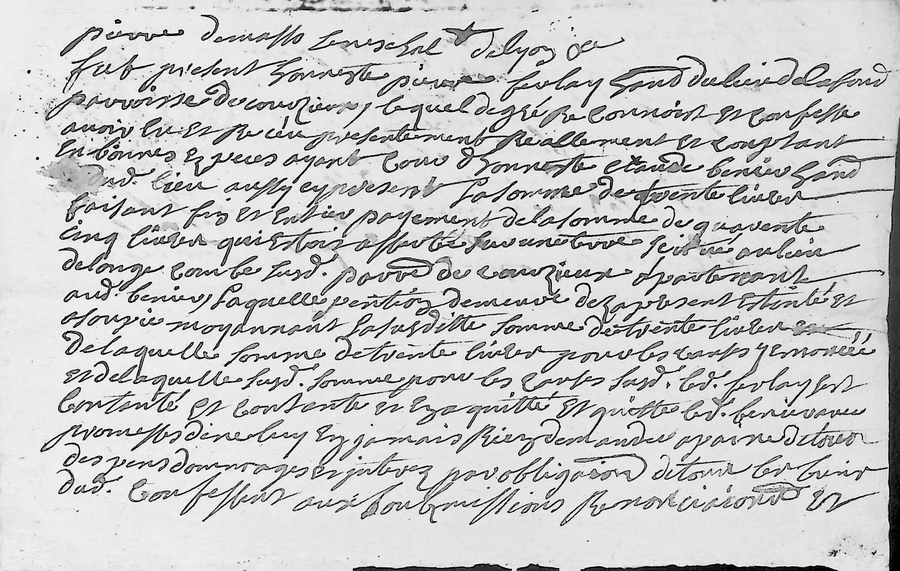 pierre demasso seneschal de lyon &a
fut present honneste pierre ferlay hand du lieu de lafond
parroisse de couzieux, lequel de gré Reconnoist et confesse
avoir eu et Receu presentement Reallement et comptant
En bonnes Especes ayant cour d'honneste claude benier hand
dud. lieu aussy present La somme de trente livres
faisant fin et Entier payement de la somme de quarente
cinq livres qui Estoit assertée sur une terre scituée au lieu
de longe combe susd. parre de couzieux apartenant
aud. benier, Laquelle pention demeure dez a present Estinté et
asoupie moyannant La susditte somme de trente livres
de laquelle somme de trente livres pour les causes y Enoncéé
Et de laquelle susd. somme pour les causes susd. led. ferlay sest
Contanté et contante et En a quitté Et quitte led. benier avec
promesses de ne luy En jamais Rien demander a paine de tous
despens dommages et interez par obligaon de tous les biens
dud. Confessant aux soubmissions Renonciaions Et